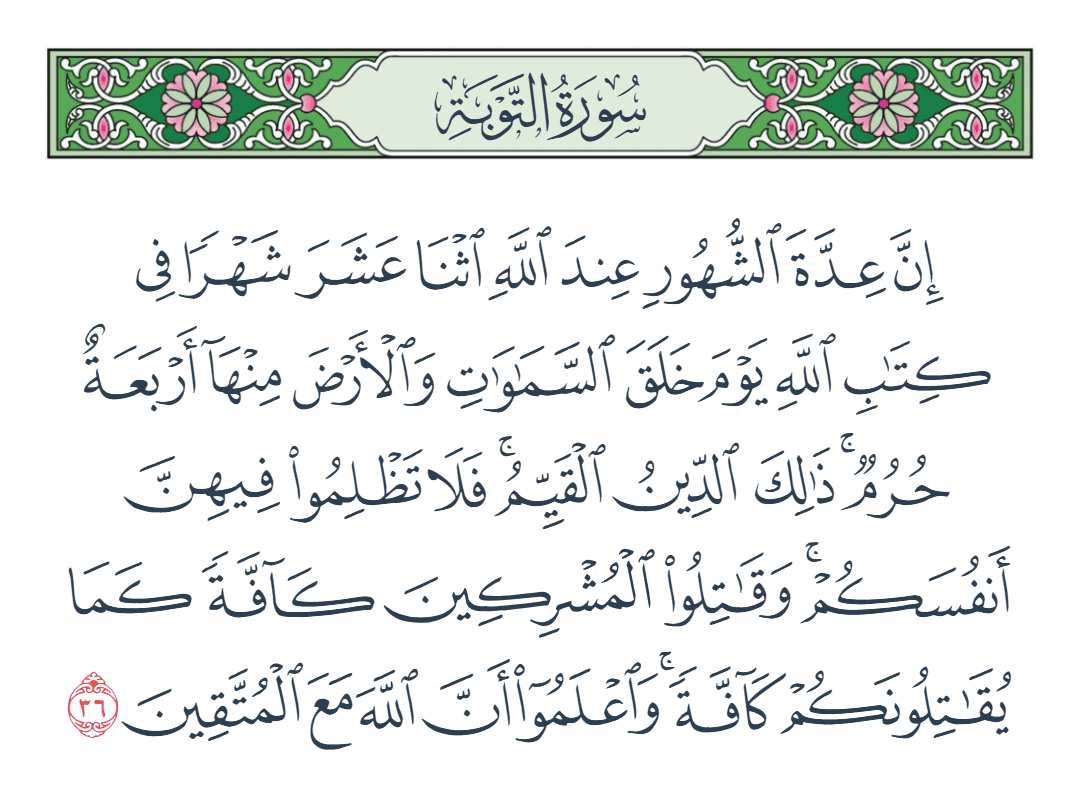 سُورَةُ التَّوْبَةِ
إِنَّ عِدَّةَ ٱلشُّهُورِ عِندَ ٱللَّهِ ٱثْنَا عَشَرَ شَهْرًا فِى
كِتَٰبِ ٱللَّهِ يَوْمَ خَلَقَ ٱلسَّمَٰوَٰتِ وَٱلْأَرْضَ مِنْهَآ أَرْبَعَةٌ
حُرُمٌ ۚ ذَٰلِكَ ٱلدِّينُ ٱلْقَيِّمُ ۚ فَلَا تَظْلِمُوا۟ فِيهِنَّ
أَنفُسَكُمْ ۚ وَقَٰتِلُوا۟ ٱلْمُشْرِكِينَ كَآفَّةً كَمَا
يُقَٰتِلُونَكُمْ كَآفَّةً ۚ وَٱعْلَمُوٓا۟ أَنَّ ٱللَّهَ مَعَ ٱلْمُتَّقِينَ ٣٦